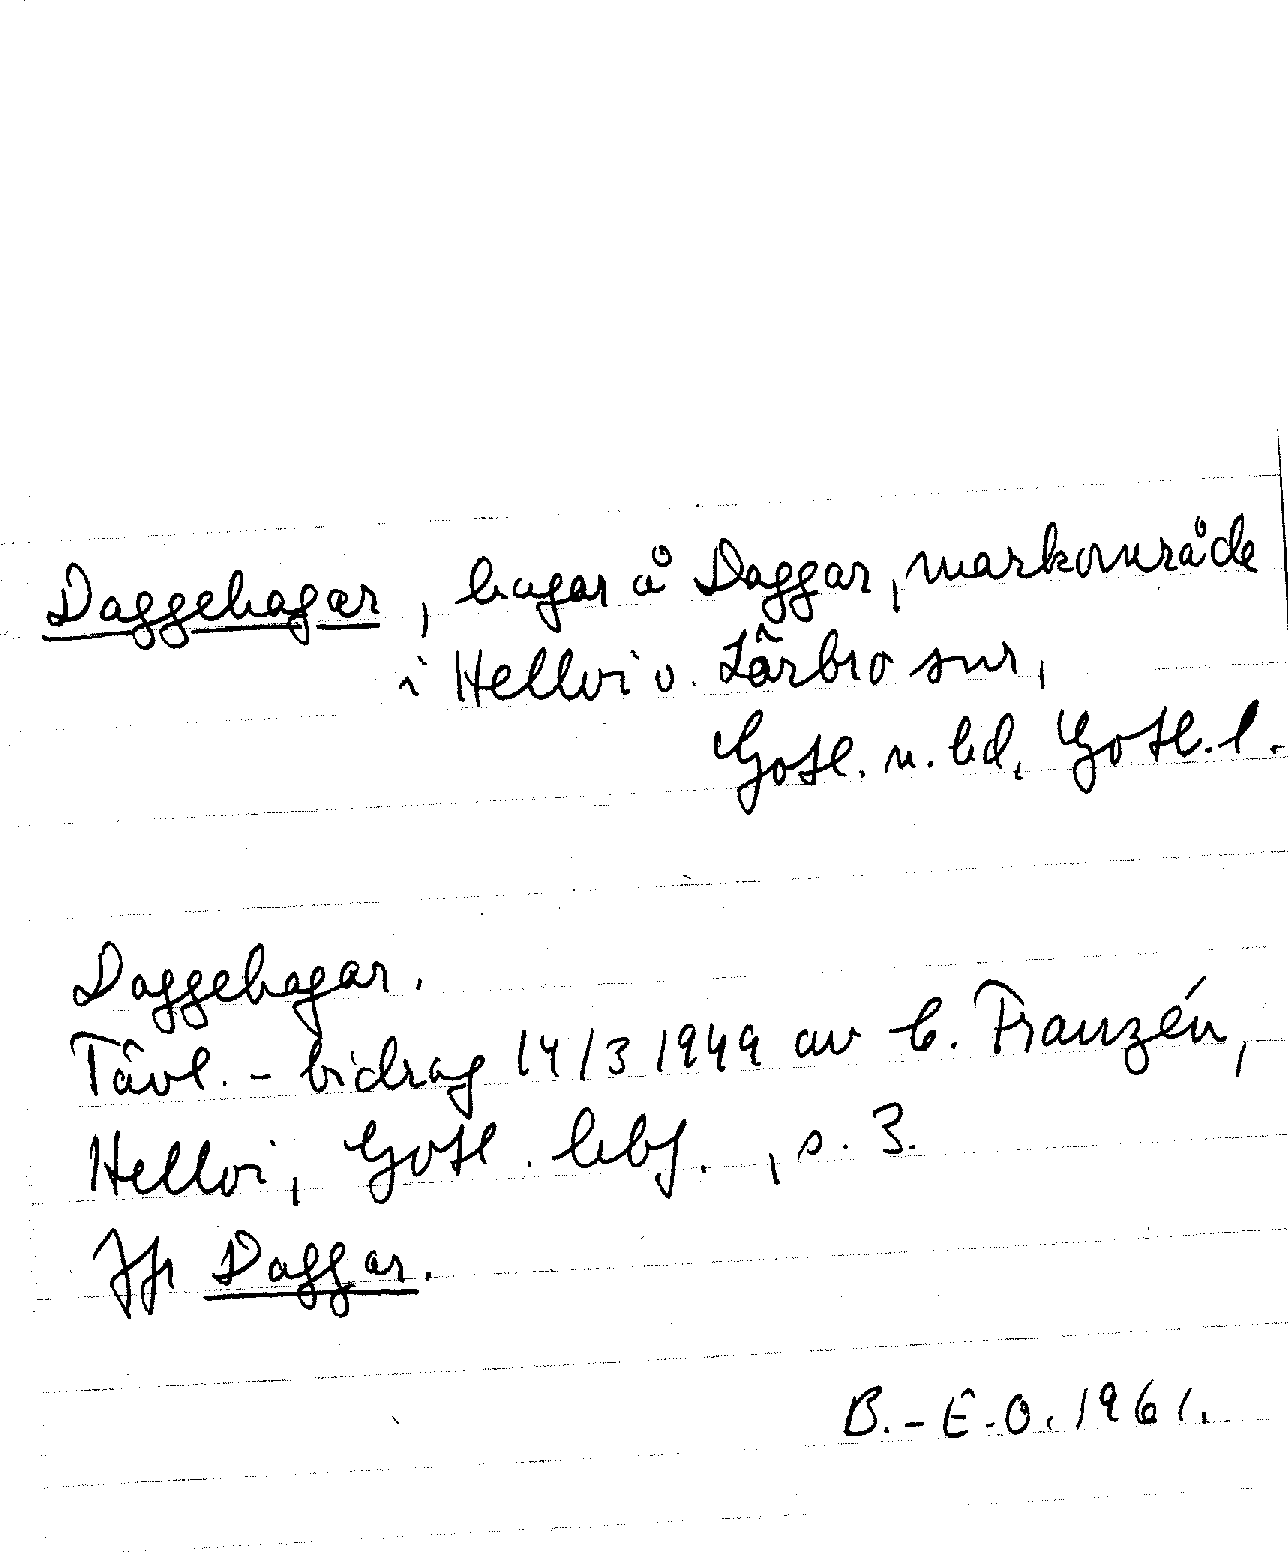 Daggehagar, hagar å Daggar, markområde
i Hellvi o. Lärbro snr,
Gotl. n. hd, Gotl. l.
Daggehagar.
Tävl.-bidrag 14/3 1949 av C. Franzén,
Hellvi, Gotl. hbf., s. 3.
Jfr Daggar.
B.-E.O. 1961.